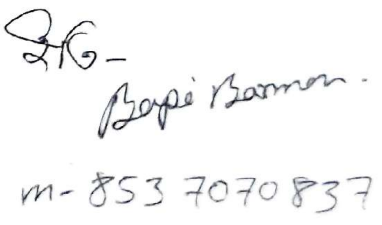 ইতি-
Bapi Barman.
m- 8537070837